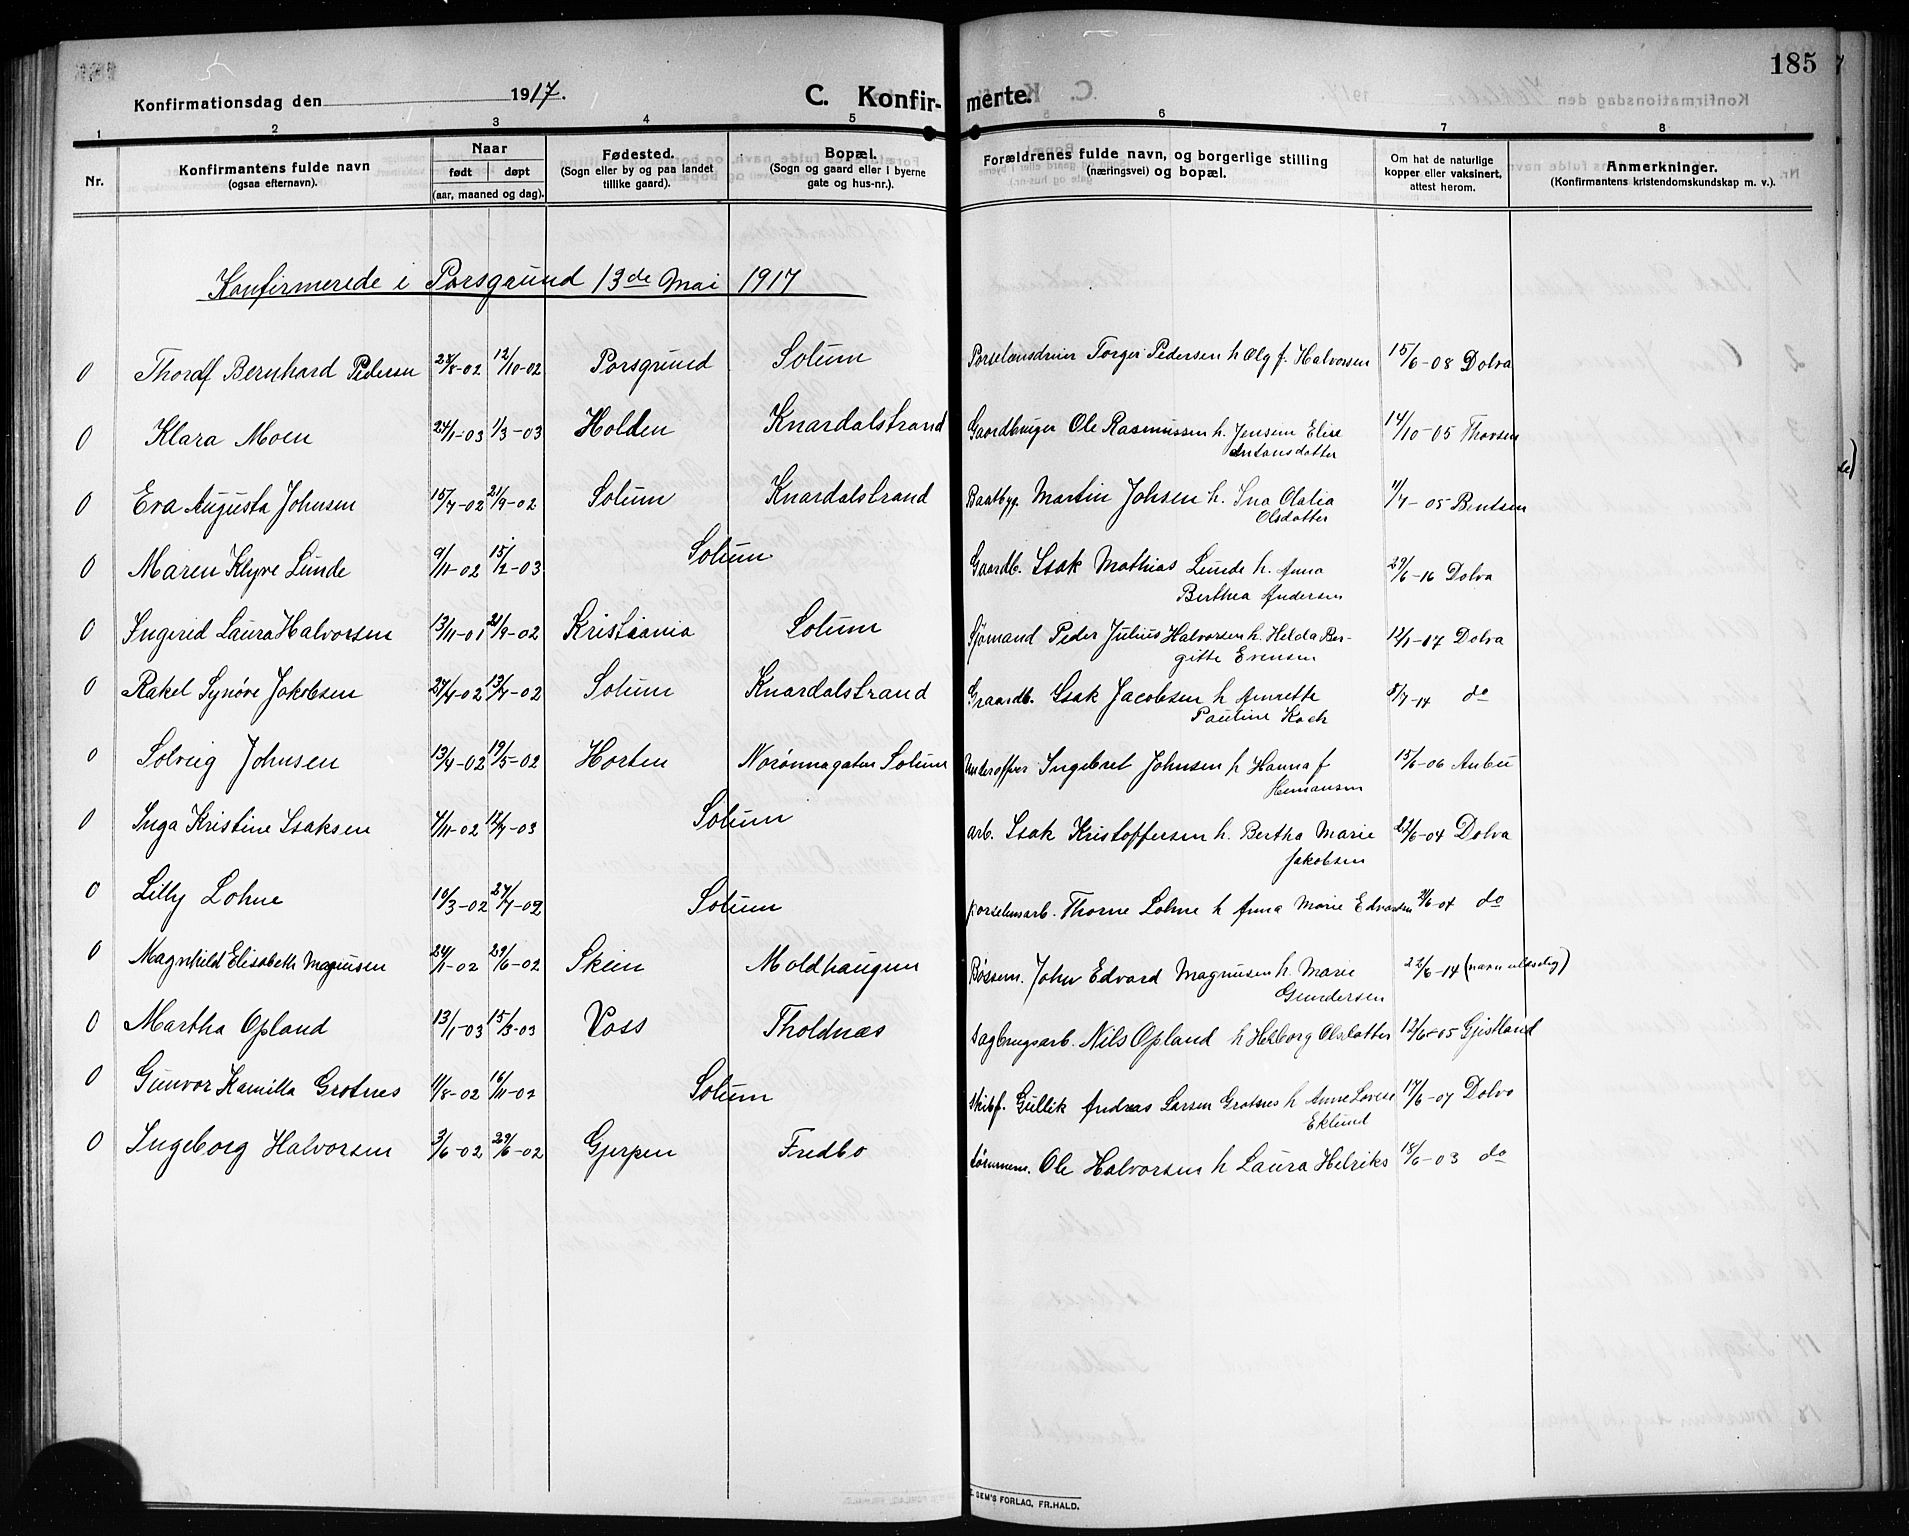 185
Konfirmationsdag den 1917.
C. Konfirmerte.
1 2 3 4 5 6 7 8
Nr.
Konfirmantens fulde navn
(ogsaa efternavn).
Naar
født døpt
(aar, maaned og dag).
Fødested.
(Sogn eller by og paa landet
tillike gaard).
Bopæl.
(Sogn og gaard eller i byerne
gate og hus-nr.).
Forældrenes fulde navn, og borgerlige stilling
(næringsvei) og bopæl.
Om hat de naturlige
kopper eller vaksinert,
attest herom.
Anmerkninger.
(Konfirmantens kristendomskundskap m. v.).
Konfirmerede i Porsgrund 13de Mai 1917
0 Thorolf Bernhard Pedersen 28/8-02 12/10-02 Porsgrund Solum Torger Pedersen h Olg f. Halvorsen 15/6-08 Dolva
0 Klara Moen 24/1-03 1/3-03 Holden Knardalstrand Gaardbruger Ole Rasmussen h. Jensein Elise 14/10-05 Thorsen
Antonsdatter
0 Eva Augusta Johnsen 15/7-02 21/9-02 Solum Knardalstrand Baatbyg. Martin Johsen h. Ina Olalia 11/7-05 Bentsen
Olsdatter
0 Maren Klyve Lunde 9/11-02 15/2-03 Solum Gaardb. Isak Mathias Lunde h. Anna 29/6-16 Dolva
Berthea Andersen
0 Ingerid Laura Halvorsen 13/11-01 21/9-02 Kristiania Solum Sjømand Peder Julius Halvorsen h. Helda Ber-
gitte Evensen 12/1-17 Dolva
0 Rakel Synøve Jakobsen 27/4-02 13/7-02 Solum Knardalstrand Graardb. Isak Jacobsen h Annette 8/7-14 do
Pauline Koch
0 Solveig Johnsen 13/4-02 19/5-02 Horten Norønnagaten Solum Underoffier Ingebret Johnsen h Hanna f 15/6-06 Aubu
Hemansen
0 Inga Kristine Isaksen 4/11-02 12/7-03 Solum arb. Isak Kristoffersen h. Bertha Marie 22/6-04 Dolva
Jakobsen
0 Lilly Lohne 10/3-02 27/7-02 Solum porselensarb. Thorne Lohne h Anna Marie Edvardsen 21/6-04 do
0 Magnhild Elisabeth Magnusen 24/1-02 29/6-02 Skien Moldhaugen Bøssem. John Edvard Magnusen h. Marie 22/6-14 (navn ulæselig)
Gundersen
0 Martha Opland 13/1-03 15/3-03 Voss Tholdnæs Sagbrugsarb. Nils Opland h Helborg Olsdatter 12/6-05 Gjistland
0 Gunvor Kamilla Grotnes 11/8-02 16/11-02 Solum Skibsf. Gullik Andreas Larsen Grotnes h Anne Lovise 17/6-07 Dolva
Eklund
0 Ingeborg Halvorsen 3/6-02 29/6-02 Gjerpen Fredbo Tømmerm. Ole Halvorsen h Laura Helriks 18/6-03 do
E. SEM'S FORLAG, FR.HALD.